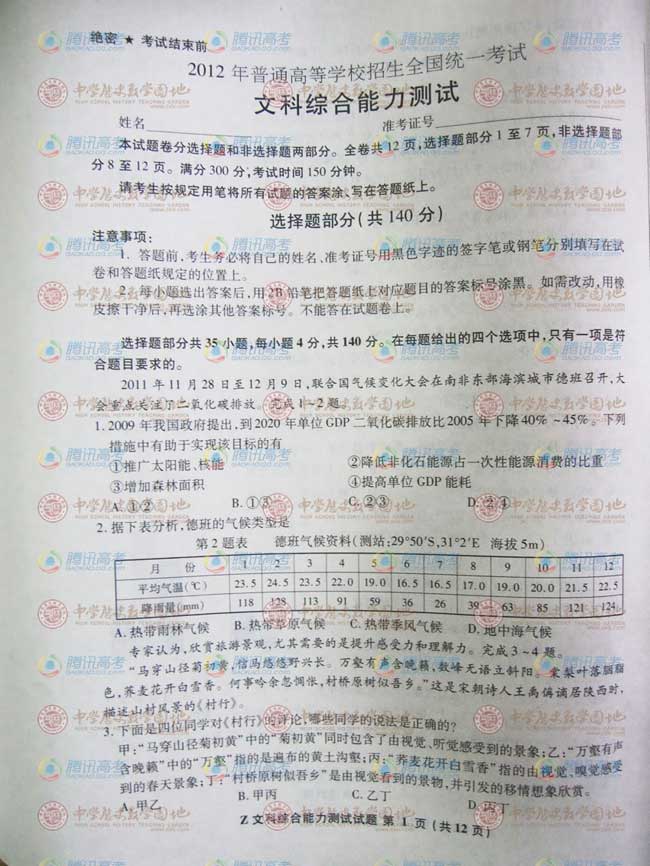 绝密 ★ 考试结束前
2012年普通高等学校招生全国统一考试
文科综合能力测试
姓名 准考证号
本试题卷分选择题和非选择题两部分。全卷共12页,选择题部分1至7页,非选择题部
分8至12页。满分300分,考试时间150分钟。
请考生按规定用笔将所有试题的答案涂、写在答题纸上。
选择题部分(共140分)
注意事项:
1. 答题前,考生务必将自己的姓名、准考证号用黑色字迹的签字笔或钢笔分别填写在试
卷和答题纸规定的位置上。
2. 每小题选出答案后,用2B铅笔把答题纸上对应题目的答案标号涂黑。如需改动,用橡
皮擦干净后,再选涂其他答案标号。不能答在试题卷上。
选择题部分共35小题,每小题4分,共140分。在每题给出的四个选项中,只有一项是符
合题目要求的。
2011年11月28日至12月9日,联合国气候变化大会在南非东部海滨城市德班召开,大
会重点关注了二氧化碳排放。完成1~2题。
1. 2009年我国政府提出,到2020年单位GDP二氧化碳排放比2005年下降40%~45%。下列
措施中有助于实现该目标的有
①推广太阳能、核能 ②降低非化石能源占一次性能源消费的比重
③增加森林面积 ④提高单位GDP能耗
A. ①② B. ①③ C. ②③ D. ②④
2. 据下表分析,德班的气候类型是
第2题表 德班气候资料(测站:29°50′S,31°2′E 海拔5m)
月 份 1 2 3 4 5 6 7 8 9 10 11 12
平均气温(℃) 23.5 24.5 23.5 22.0 19.0 16.5 16.5 17.0 19.0 20.0 21.5 22.5
降雨量(mm) 118 128 113 91 59 36 26 39 63 85 121 124
A. 热带雨林气候 B. 热带草原气候 C. 热带季风气候 D. 地中海气候
专家认为,欣赏旅游景观,尤其需要的是提升感受力和理解力。完成3~4题。
“马穿山径菊初黄,信马悠悠野兴长。万壑有声含晚籁,数峰无语立斜阳。棠梨叶落胭脂
色,荞麦花开白雪香。何事吟余忽惆怅,村桥原树似吾乡。”这是宋朝诗人王禹偁谪居陕西时,
描述山村风景的《村行》。
3. 下面是四位同学对《村行》的评论,哪些同学的说法是正确的?
甲:“马穿山径菊初黄”中的“菊初黄”同时包含了由视觉、听觉感受到的景象;乙:“万壑有声
含晚籁”中的“万壑”指的是遍布的黄土沟壑;丙:“荞麦花开白雪香”指的由视觉、嗅觉感受
到的春天景象;丁:“村桥原树似吾乡”是由视觉看到的景物,并引发的移情想象欣赏。
A. 甲乙 B. 甲丙 C. 乙丁 D. 丙丁
Z文科综合能力测试试题 第1页(共12页)